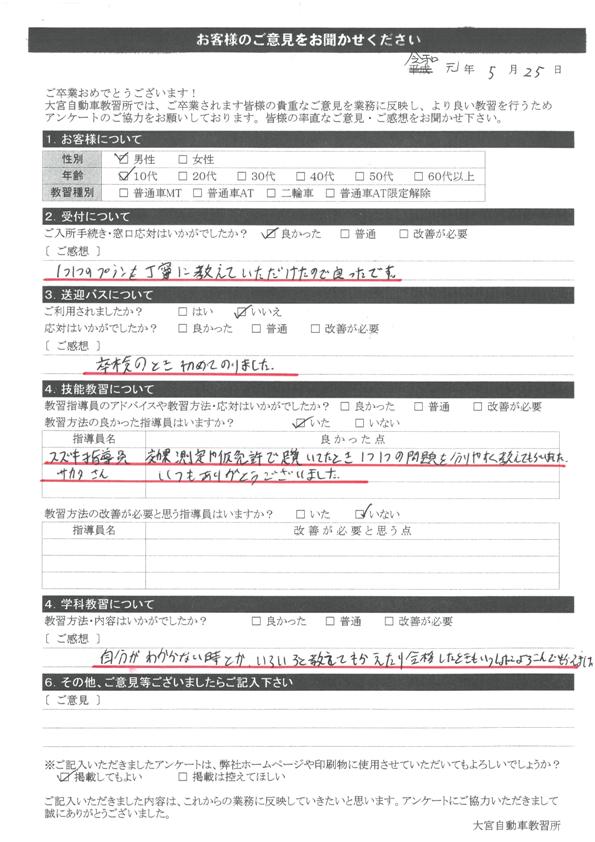 お客様のご意見をお聞かせください
令和
平成 元年 5月 25日
ご卒業おめでとうございます！
大宮自動車教習所では、ご卒業されます皆様の貴重なご意見を業務に反映し、より良い教習を行うため
アンケートのご協力をお願いしております。皆様の率直なご意見・ご感想をお聞かせ下さい。
1. お客様について
性別 ☑ 男性 □ 女性
年齢 ☑ 10代 □ 20代 □ 30代 □ 40代 □ 50代 □ 60代以上
教習種別 □ 普通車MT □ 普通車AT □ 二輪車 □ 普通車AT限定解除
2. 受付について
ご入所手続き・窓口応対はいかがでしたか？ ☑ 良かった □ 普通 □ 改善が必要
[ ご感想 ]
1つ1つのプランを丁寧に教えていただけたので良ったです
3. 送迎バスについて
ご利用されましたか？ □ はい ☑ いいえ
応対はいかがでしたか？ □ 良かった □ 普通 □ 改善が必要
[ ご感想 ]
卒検のとき初めてのりました.
4. 技能教習について
教習指導員のアドバイスや教習方法・応対はいかがでしたか？ □ 良かった □ 普通 □ 改善が必要
教習方法の良かった指導員はいますか？ ☑ いた □ いない
指導員名 良かった点
スズキ指導員 効果測定や仮免許で いてたとき 1つ1つの問題を分りやすく教えてもらいました.
サカタさん いつもありがとうございました.
教習方法の改善が必要と思う指導員はいますか？ □ いた ☑ いない
指導員名 改善が必要と思う点
4. 学科教習について
教習方法・内容はいかがでしたか？ □ 良かった □ 普通 □ 改善が必要
[ ご感想 ]
自分がわからない時とか、いろいろと教えてもらえたり合格したときもいっしょによろこんで
6. その他、ご意見等ございましたらご記入下さい
[ ご意見 ]
※ご記入いただきましたアンケートは、弊社ホームページや印刷物に使用させていただいてもよろしいでしょうか？
☑ 掲載してもよい □ 掲載は控えてほしい
ご記入いただきました内容は、これからの業務に反映していきたいと思います。アンケートにご協力いただきまして
誠にありがとうございました。
大宮自動車教習所